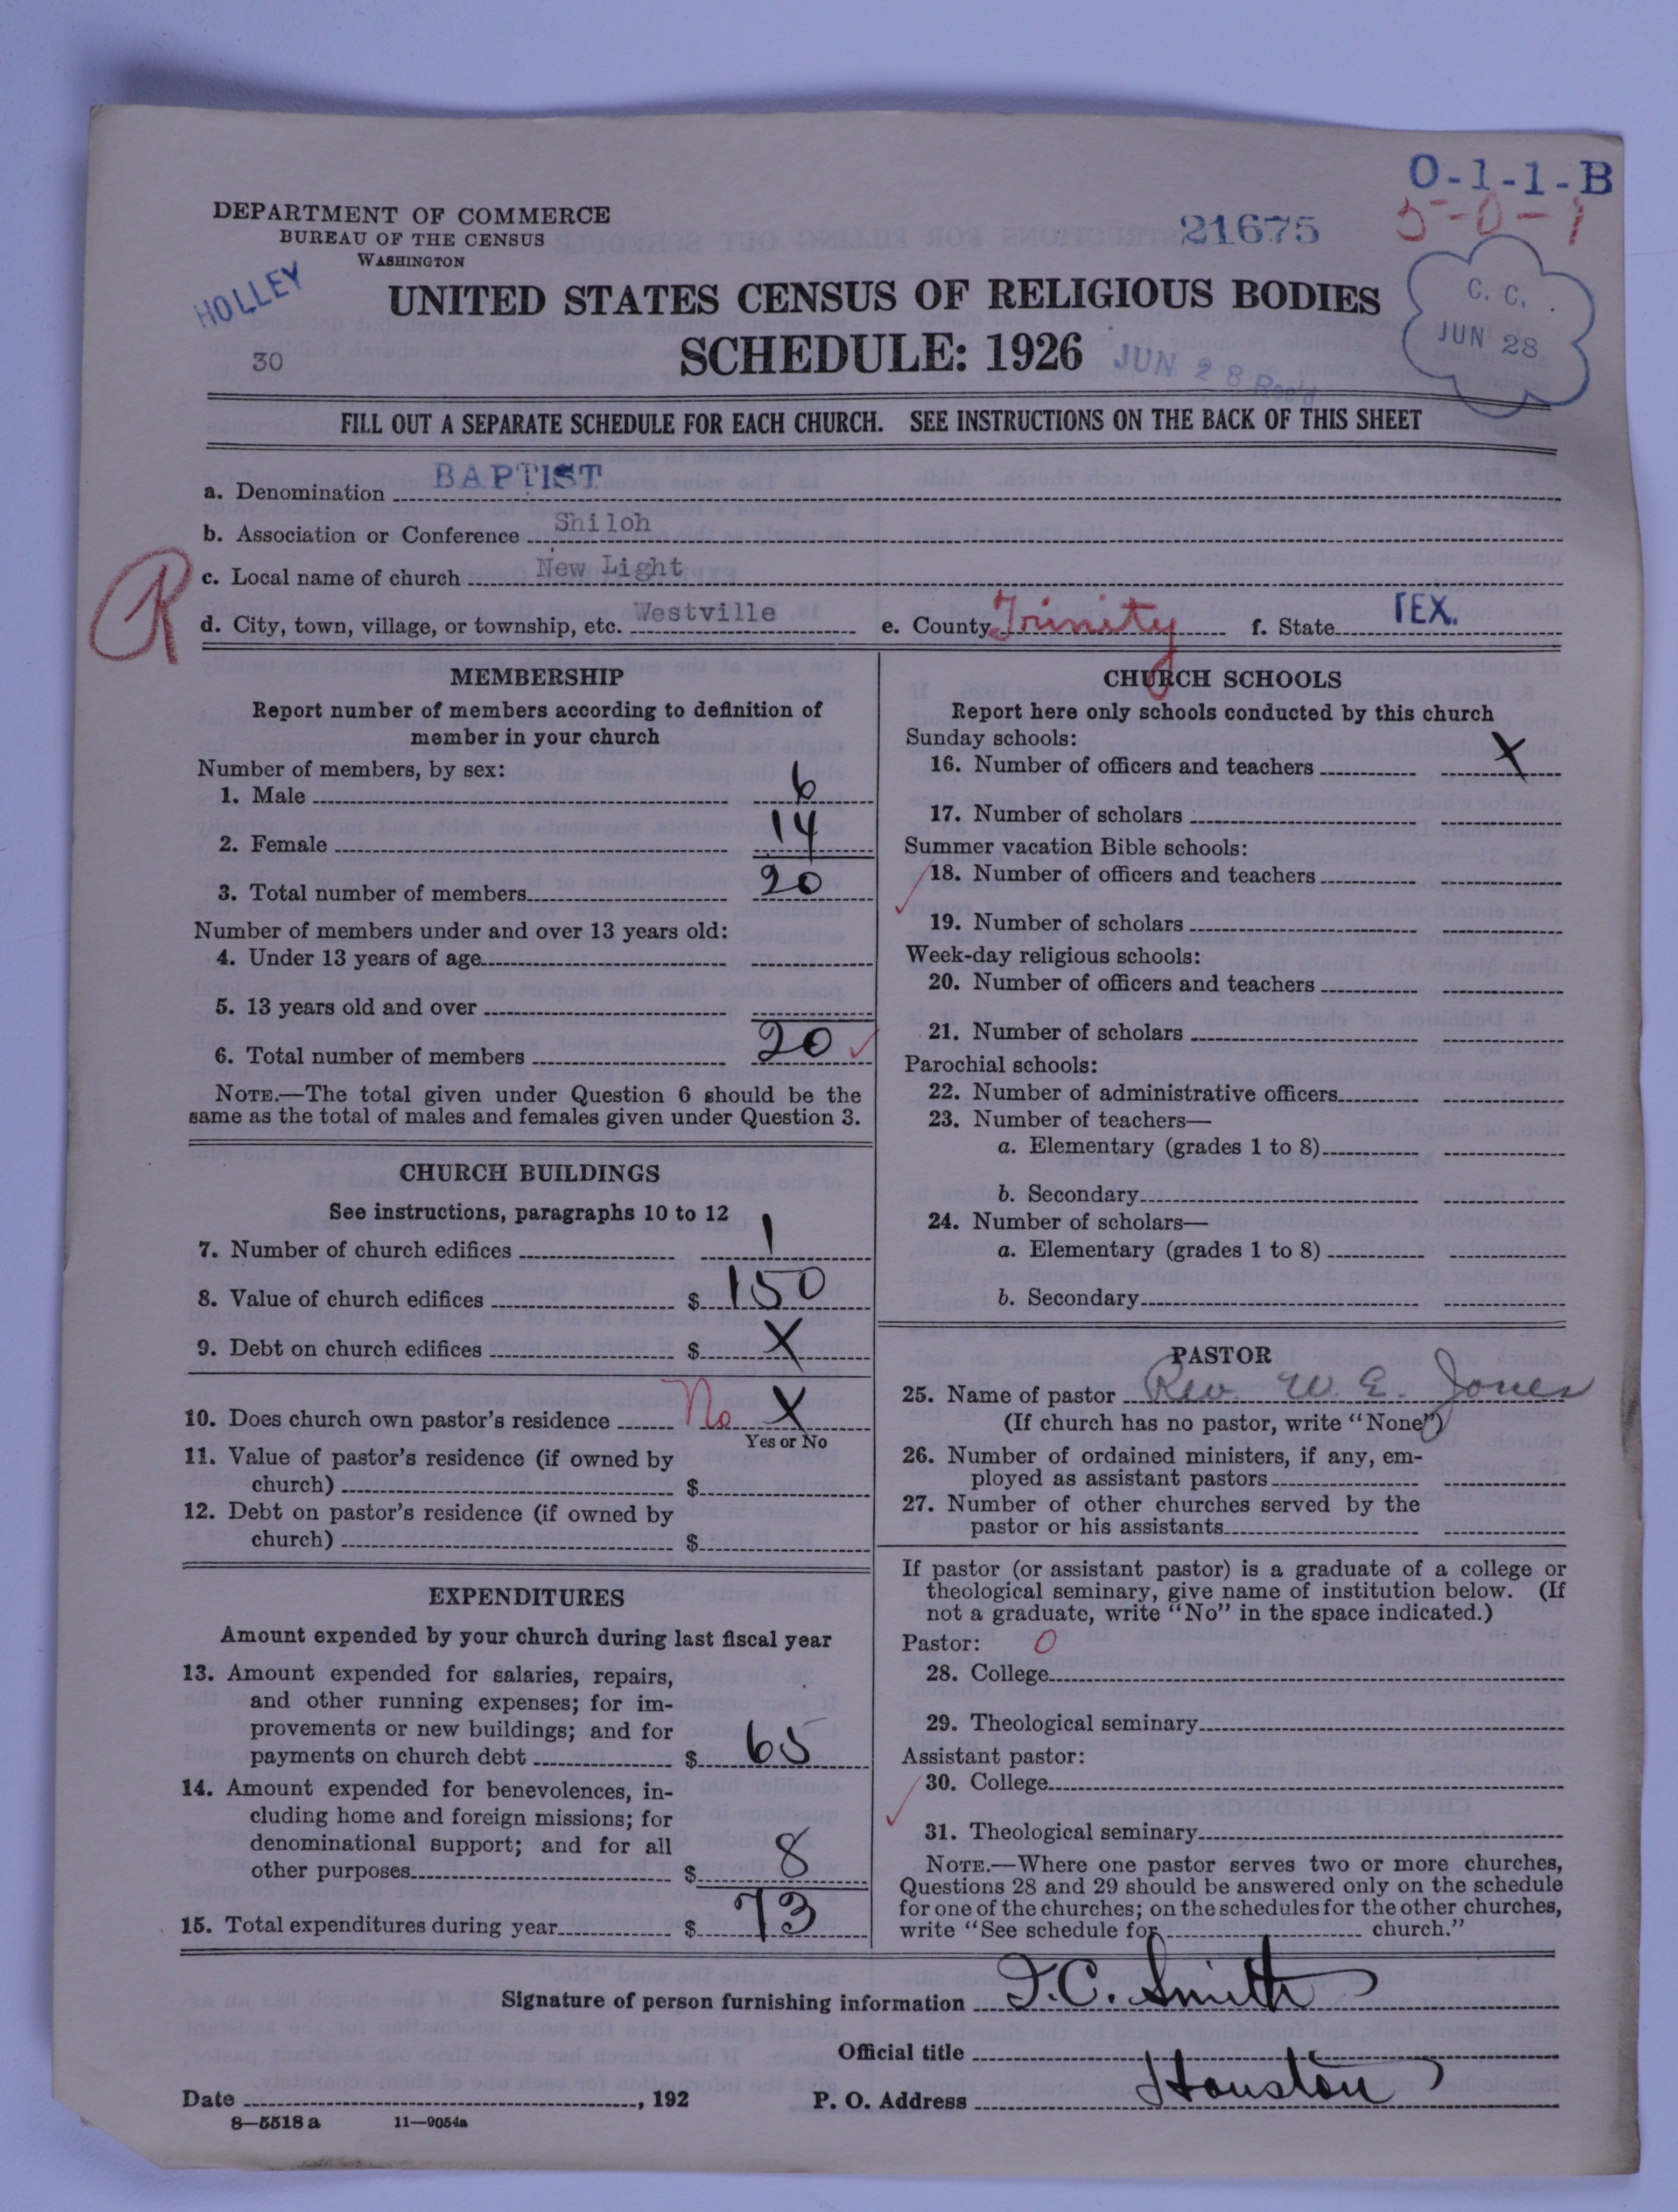 O-1-1-B
5-0-1
DEPARTMENT OF COMMERCE
BUREAU OF THE CENSUS
WASHINGTON
21675
HOLLEY
UNITED STATES CENSUS OF RELIGIOUS BODIES
C. C.
JUN 28
30
SCHEDULE: 1926
JUN 28 Rec'd
FILL OUT A SEPARATE SCHEDULE FOR EACH CHURCH. SEE INSTRUCTIONS ON THE BACK OF THIS SHEET
a. Denomination BAPTIST
b. Association or Conference Shiloh
c. Local name of church New Light
R
d. City, town, village, or township, etc. Westville e. County Trinity f. State TEX.
MEMBERSHIP
Report number of members according to definition of
member in your church
Number of members, by sex:
1. Male 6
2. Female 14
3. Total number of members 20
Number of members under and over 13 years old:
4. Under 13 years of age
5. 13 years old and over
6. Total number of members 20
NOTE.—The total given under Question 6 should be the
same as the total of males and females given under Question 3.
CHURCH BUILDINGS
See instructions, paragraphs 10 to 12
7. Number of church edifices 1
8. Value of church edifices $ 150
9. Debt on church edifices $ X
10. Does church own pastor's residence No X
Yes or No
11. Value of pastor's residence (if owned by
church) $
12. Debt on pastor's residence (if owned by
church) $
EXPENDITURES
Amount expended by your church during last fiscal year
13. Amount expended for salaries, repairs,
and other running expenses; for im-
provements or new buildings; and for
payments on church debt $ 65
14. Amount expended for benevolences, in-
cluding home and foreign missions; for
denominational support; and for all
other purposes $ 8
15. Total expenditures during year $ 73
CHURCH SCHOOLS
Report here only schools conducted by this church
Sunday schools:
16. Number of officers and teachers X
17. Number of scholars
Summer vacation Bible schools:
18. Number of officers and teachers
19. Number of scholars
Week-day religious schools:
20. Number of officers and teachers
21. Number of scholars
Parochial schools:
22. Number of administrative officers
23. Number of teachers—
a. Elementary (grades 1 to 8)
b. Secondary
24. Number of scholars—
a. Elementary (grades 1 to 8)
b. Secondary
PASTOR
25. Name of pastor Rev. W. E. Jones
(If church has no pastor, write "None")
26. Number of ordained ministers, if any, em-
ployed as assistant pastors
27. Number of other churches served by the
pastor or his assistants
If pastor (or assistant pastor) is a graduate of a college or
theological seminary, give name of institution below. (If
not a graduate, write "No" in the space indicated.)
Pastor: 0
28. College
29. Theological seminary
Assistant pastor:
30. College
31. Theological seminary
NOTE.—Where one pastor serves two or more churches,
Questions 28 and 29 should be answered only on the schedule
for one of the churches; on the schedules for the other churches,
write "See schedule for church."
Signature of person furnishing information J. C. Smith
Official title
Date , 192 P. O. Address Houston
8—5518 a 11—9054a